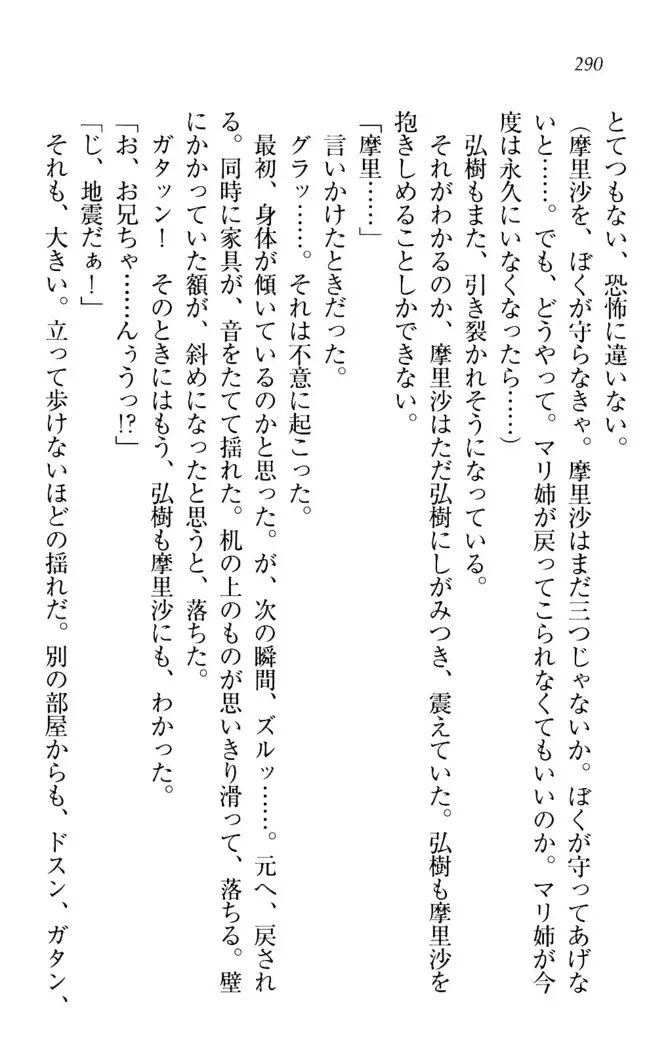 290
とてつもない、恐怖に違いない。
（摩里沙を、ぼくが守らなきゃ。摩里沙はまだ三つじゃないか。ぼくが守ってあげな
いと……。でも、どうやって。マリ姉が戻ってこられなくてもいいのか。マリ姉が今
度は永久にいなくなったら……）
弘樹もまた、引き裂かれそうになっている。
それがわかるのか、摩里沙はただ弘樹にしがみつき、震えていた。弘樹も摩里沙を
抱きしめることしかできない。
「摩里……」
言いかけたときだった。
グラッ……。それは不意に起こった。
最初、身体が傾いているのかと思った。が、次の瞬間、ズルッ……。元へ、戻され
る。同時に家具が、音をたてて揺れた。机の上のものが思いきり滑って、落ちる。壁
にかかっていた額が、斜めになったと思うと、落ちた。
ガタッン！　そのときにはもう、弘樹も摩里沙にも、わかった。
「お、お兄ちゃ……んぅうっ!?」
「じ、地震だぁ！」
それも、大きい。立って歩けないほどの揺れだ。別の部屋からも、ドスン、ガタン、